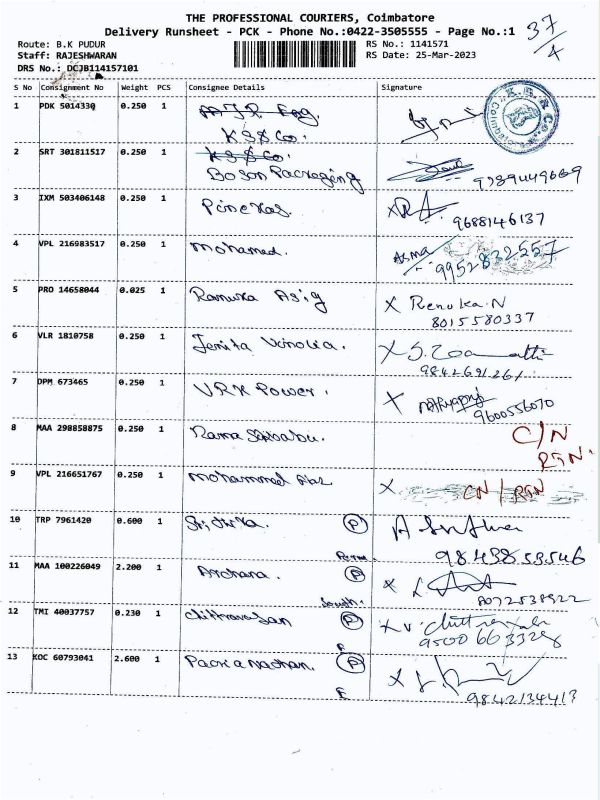 THE PROFESSIONAL COURIERS, Coimbatore
Delivery Runsheet - PCK - Phone No.:0422-3505555 - Page No.:1
37/4
Route: B.K PUDUR
RS No.: 1141571
Staff: RAJESHWARAN
RS Date: 25-Mar-2023
DRS No.: DCJB114157101
S No Consignment No Weight PCS Consignee Details Signature
1 PDK 5014330 0.250 1
KS$Co.
2 SRT 301811517 0.250 1 KS$Co.
Boson Packageing
3 IXM 503406148 0.250 1 Pinekas.
9688146137
4 VPL 216983517 0.250 1 Mohamed. Asma
9952832557
5 PRO 14658044 0.025 1 Ranuka Asig X Renuka.N
8015580337
6 VLR 1810758 0.250 1 Jenita Vinolia.
9842691261
7 DPM 673465 0.250 1 VRK Power. X
9600556070
8 MAA 298858875 0.250 1 Rama C/N
RSN.
9 VPL 216651767 0.250 1 Mohammed X CN / RSN
10 TRP 7961420 0.600 1 P
9843853546
11 MAA 100226049 2.200 1 Archana. P X
12 TMI 40037757 0.230 1 Chittravasan P
13 KOC 60793041 2.600 1 P X
9842134413